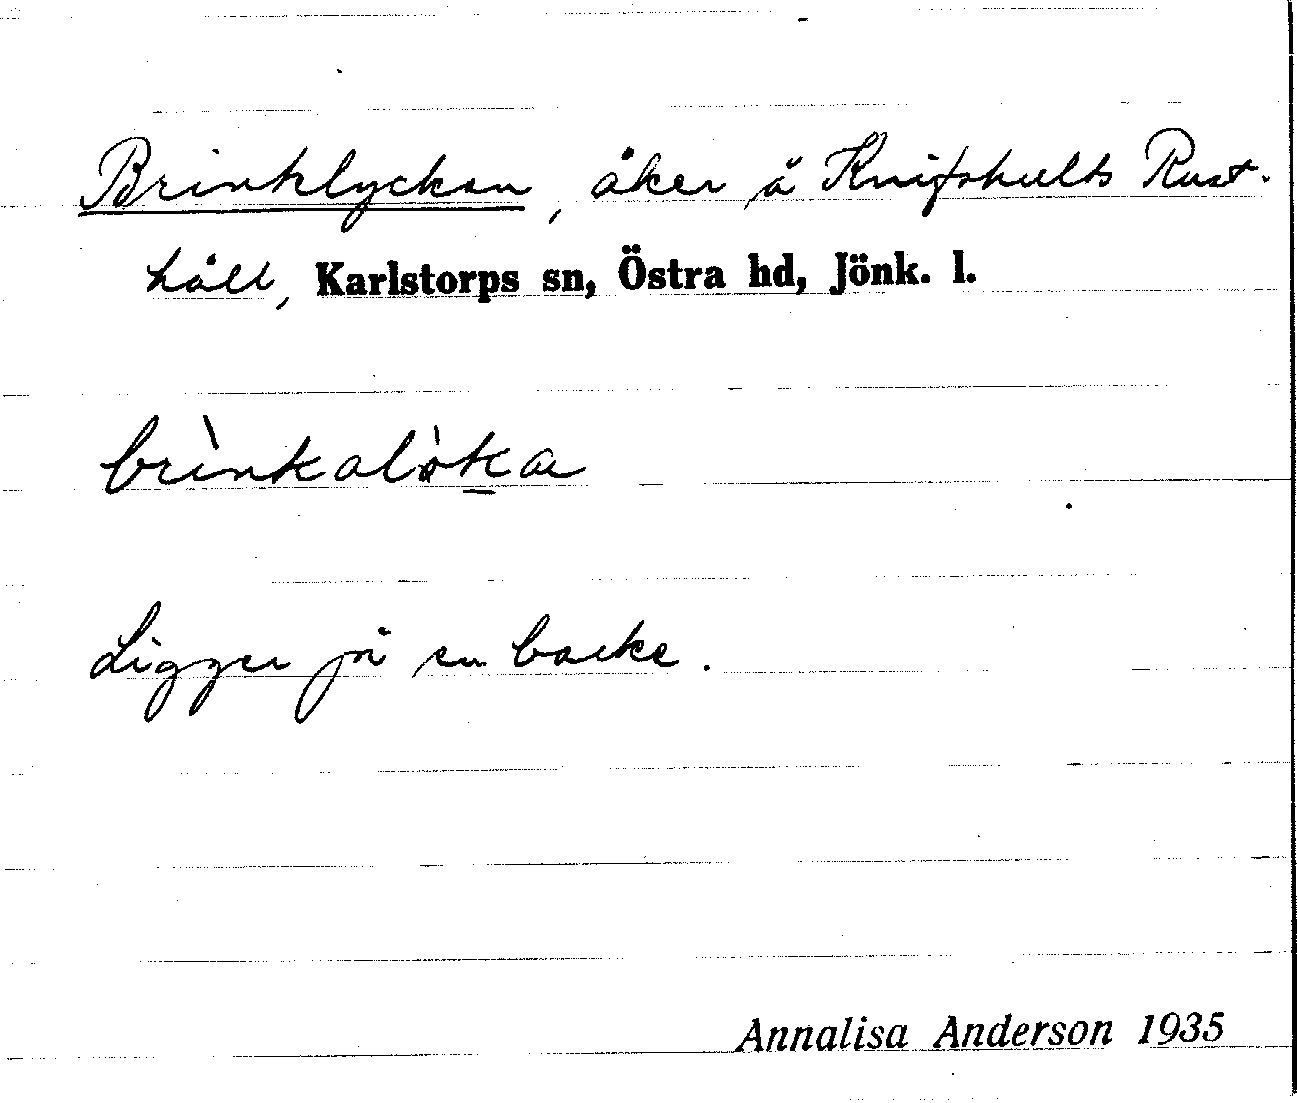 Brinklyckan, åker å Knifshults Rust-
håll, Karlstorps sn, Östra hd, Jönk. l.
Ligger på en backe.
Annalisa Anderson 1935